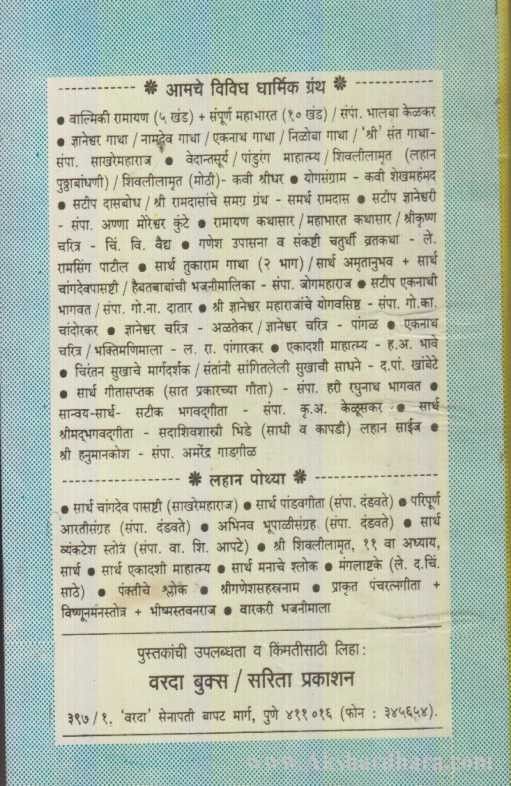 ❋ आमचे विविध धार्मिक ग्रंथ ❋
● वाल्मिकी रामायण (५ खंड) + संपूर्ण महाभारत (१० खंड) / संपा. भालबा केळकर
● ज्ञानेश्वर गाथा / नामदेव गाथा / एकनाथ गाथा / निळोबा गाथा / 'श्री' संत गाथा-
संपा. साखरेमहाराज ● वेदान्तसूर्य / पांडुरंग माहात्म्य / शिवलीलामृत (लहान
पुठ्ठाबांधणी) / शिवलीलामृत (मोठी)- कवी श्रीधर ● योगसंग्राम - कवी शेखमहंमद
● सटीप दासबोध / श्री रामदासांचे समग्र ग्रंथ - समर्थ रामदास ● सटीप ज्ञानेश्वरी
- संपा. अण्णा मोरेश्वर कुंटे ● रामायण कथासार / महाभारत कथासार / श्रीकृष्ण
चरित्र - चिं. वि. वैद्य ● गणेश उपासना व संकष्टी चतुर्थी व्रतकथा - ले.
रामसिंग पाटील ● सार्थ तुकाराम गाथा (२ भाग) / सार्थ अमृतानुभव + सार्थ
चांगदेवपासष्टी / हैबतबाबांची भजनीमालिका - संपा. जोगमहाराज ● सटीप एकनाथी
भागवत / संपा. गो.ना. दातार ● श्री ज्ञानेश्वर महाराजांचे योगवसिष्ठ - संपा. गो.का.
चांदोरकर ● ज्ञानेश्वर चरित्र - अळतेकर / ज्ञानेश्वर चरित्र - पांगळ ● एकनाथ
चरित्र / भक्तिमणिमाला - ल. रा. पांगारकर ● एकादशी माहात्म्य - ह.अ. भावे
● चिरंतन सुखाचे मार्गदर्शक / संतांनी सांगितलेली सुखाची साधने - द.पां. खांबेटे
● सार्थ गीतासप्तक (सात प्रकारच्या गीता) - संपा. हरी रघुनाथ भागवत ●
सान्वय-सार्थ- सटीक भगवद्गीता - संपा. कृ.अ. केळूसकर ● सार्थ
श्रीमद्भगवद्गीता - सदाशिवशास्त्री भिडे (साधी व कापडी) लहान साईज ●
श्री हनुमानकोश - संपा. अमरेंद्र गाडगीळ
❋ लहान पोथ्या ❋
● सार्थ चांगदेव पासष्टी (साखरेमहाराज) ● सार्थ पांडवगीता (संपा. दंडवते) ● परिपूर्ण
आरतीसंग्रह (संपा. दंडवते) ● अभिनव भूपाळीसंग्रह (संपा. दंडवते) ● सार्थ
व्यंकटेश स्तोत्र (संपा. वा. शि. आपटे) ● श्री शिवलीलामृत, ११ वा अध्याय,
सार्थ ● सार्थ एकादशी माहात्म्य ● सार्थ मनाचे श्लोक ● मंगलाष्टके (ले. द.चिं.
साठे) ● पंक्तीचे श्लोक ● श्रीगणेशसहस्त्रनाम ● प्राकृत पंचरत्नगीता +
विष्णूनमंनस्तोत्र + भीष्मस्तवनराज ● वारकरी भजनीमाला
पुस्तकांची उपलब्धता व किंमतीसाठी लिहा:
वरदा बुक्स / सरिता प्रकाशन
३९७/१, 'वरदा' सेनापती बापट मार्ग, पुणे ४११०१६ (फोन : ३४५६५४).
www.Akshardhara.com